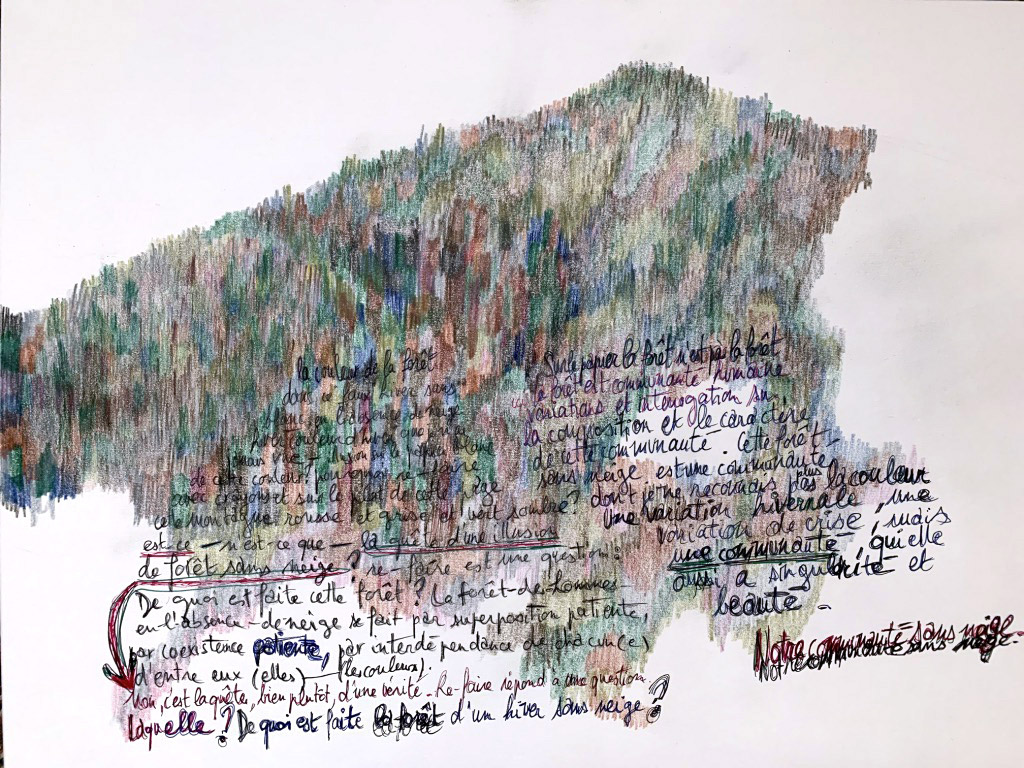 la couleur de la forêt
dans un faux hiver sans
neige, en l'absence de neige
de cette couleur? pourquoi refaire
avec crayons et sur le plat de cette page
cette montagne rousse et grise et vert sombre?
est-ce – n'est-ce que – la quête d'une illusion
de forêt sans neige? re-faire est une question:
De quoi est faite cette forêt? La forêt-de-hommes-
en-l'absence-de-neige se fait par superposition patiente,
par coexistence patiente, par interdépendance de chacun(e)
d'entre eux (elles) – (les couleurs).
Non, c'est la quête, bien plutôt, d'une vérité – Re-faire répond à une question.
Laquelle? De quoi est faite la forêt d'un hiver sans neige?
Sur le papier la forêt n'est pas la forêt
la forêt est communauté humaine
variations et interrogation sur
la composition et le caractère
de cette communauté. Cette forêt-
sans neige est une communauté
dont je ne reconnais plus pas la couleur
une variation hivernale, une
variation de crise, mais
une communauté, qui elle
aussi a singularité et
beauté –
Notre communauté sans neige –
Notre communauté sans neige –